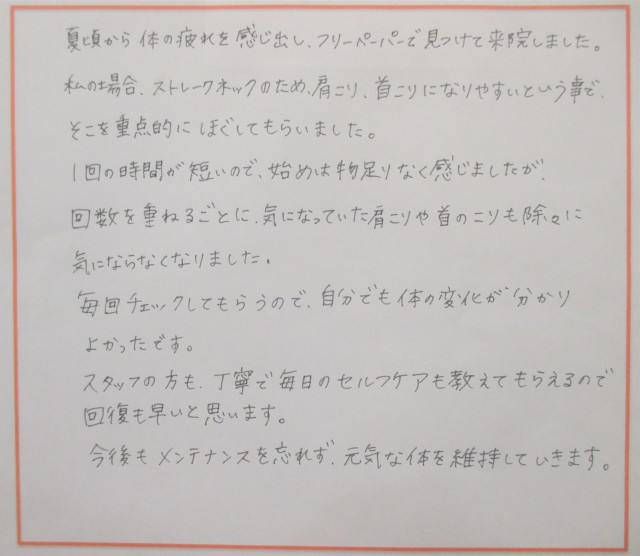 夏頃から体の疲れを感じ出し、フリーペーパーで見つけて来院しました。
私の場合、ストレートネックのため、肩こり、首こりになりやすいという事で、
そこを重点的にほぐしてもらいました。
1回の時間が短いので、始めは物足りなく感じましたが、
回数を重ねるごとに、気になっていた肩こりや首のこりも除々に
気にならなくなりました。
毎回チェックしてもらうので、自分でも体の変化が分かり
よかったです。
スタッフの方も、丁寧で毎日のセルフケアも教えてもらえるので
回復も早いと思います。
今後もメンテナンスを忘れず、元気な体を維持していきます。